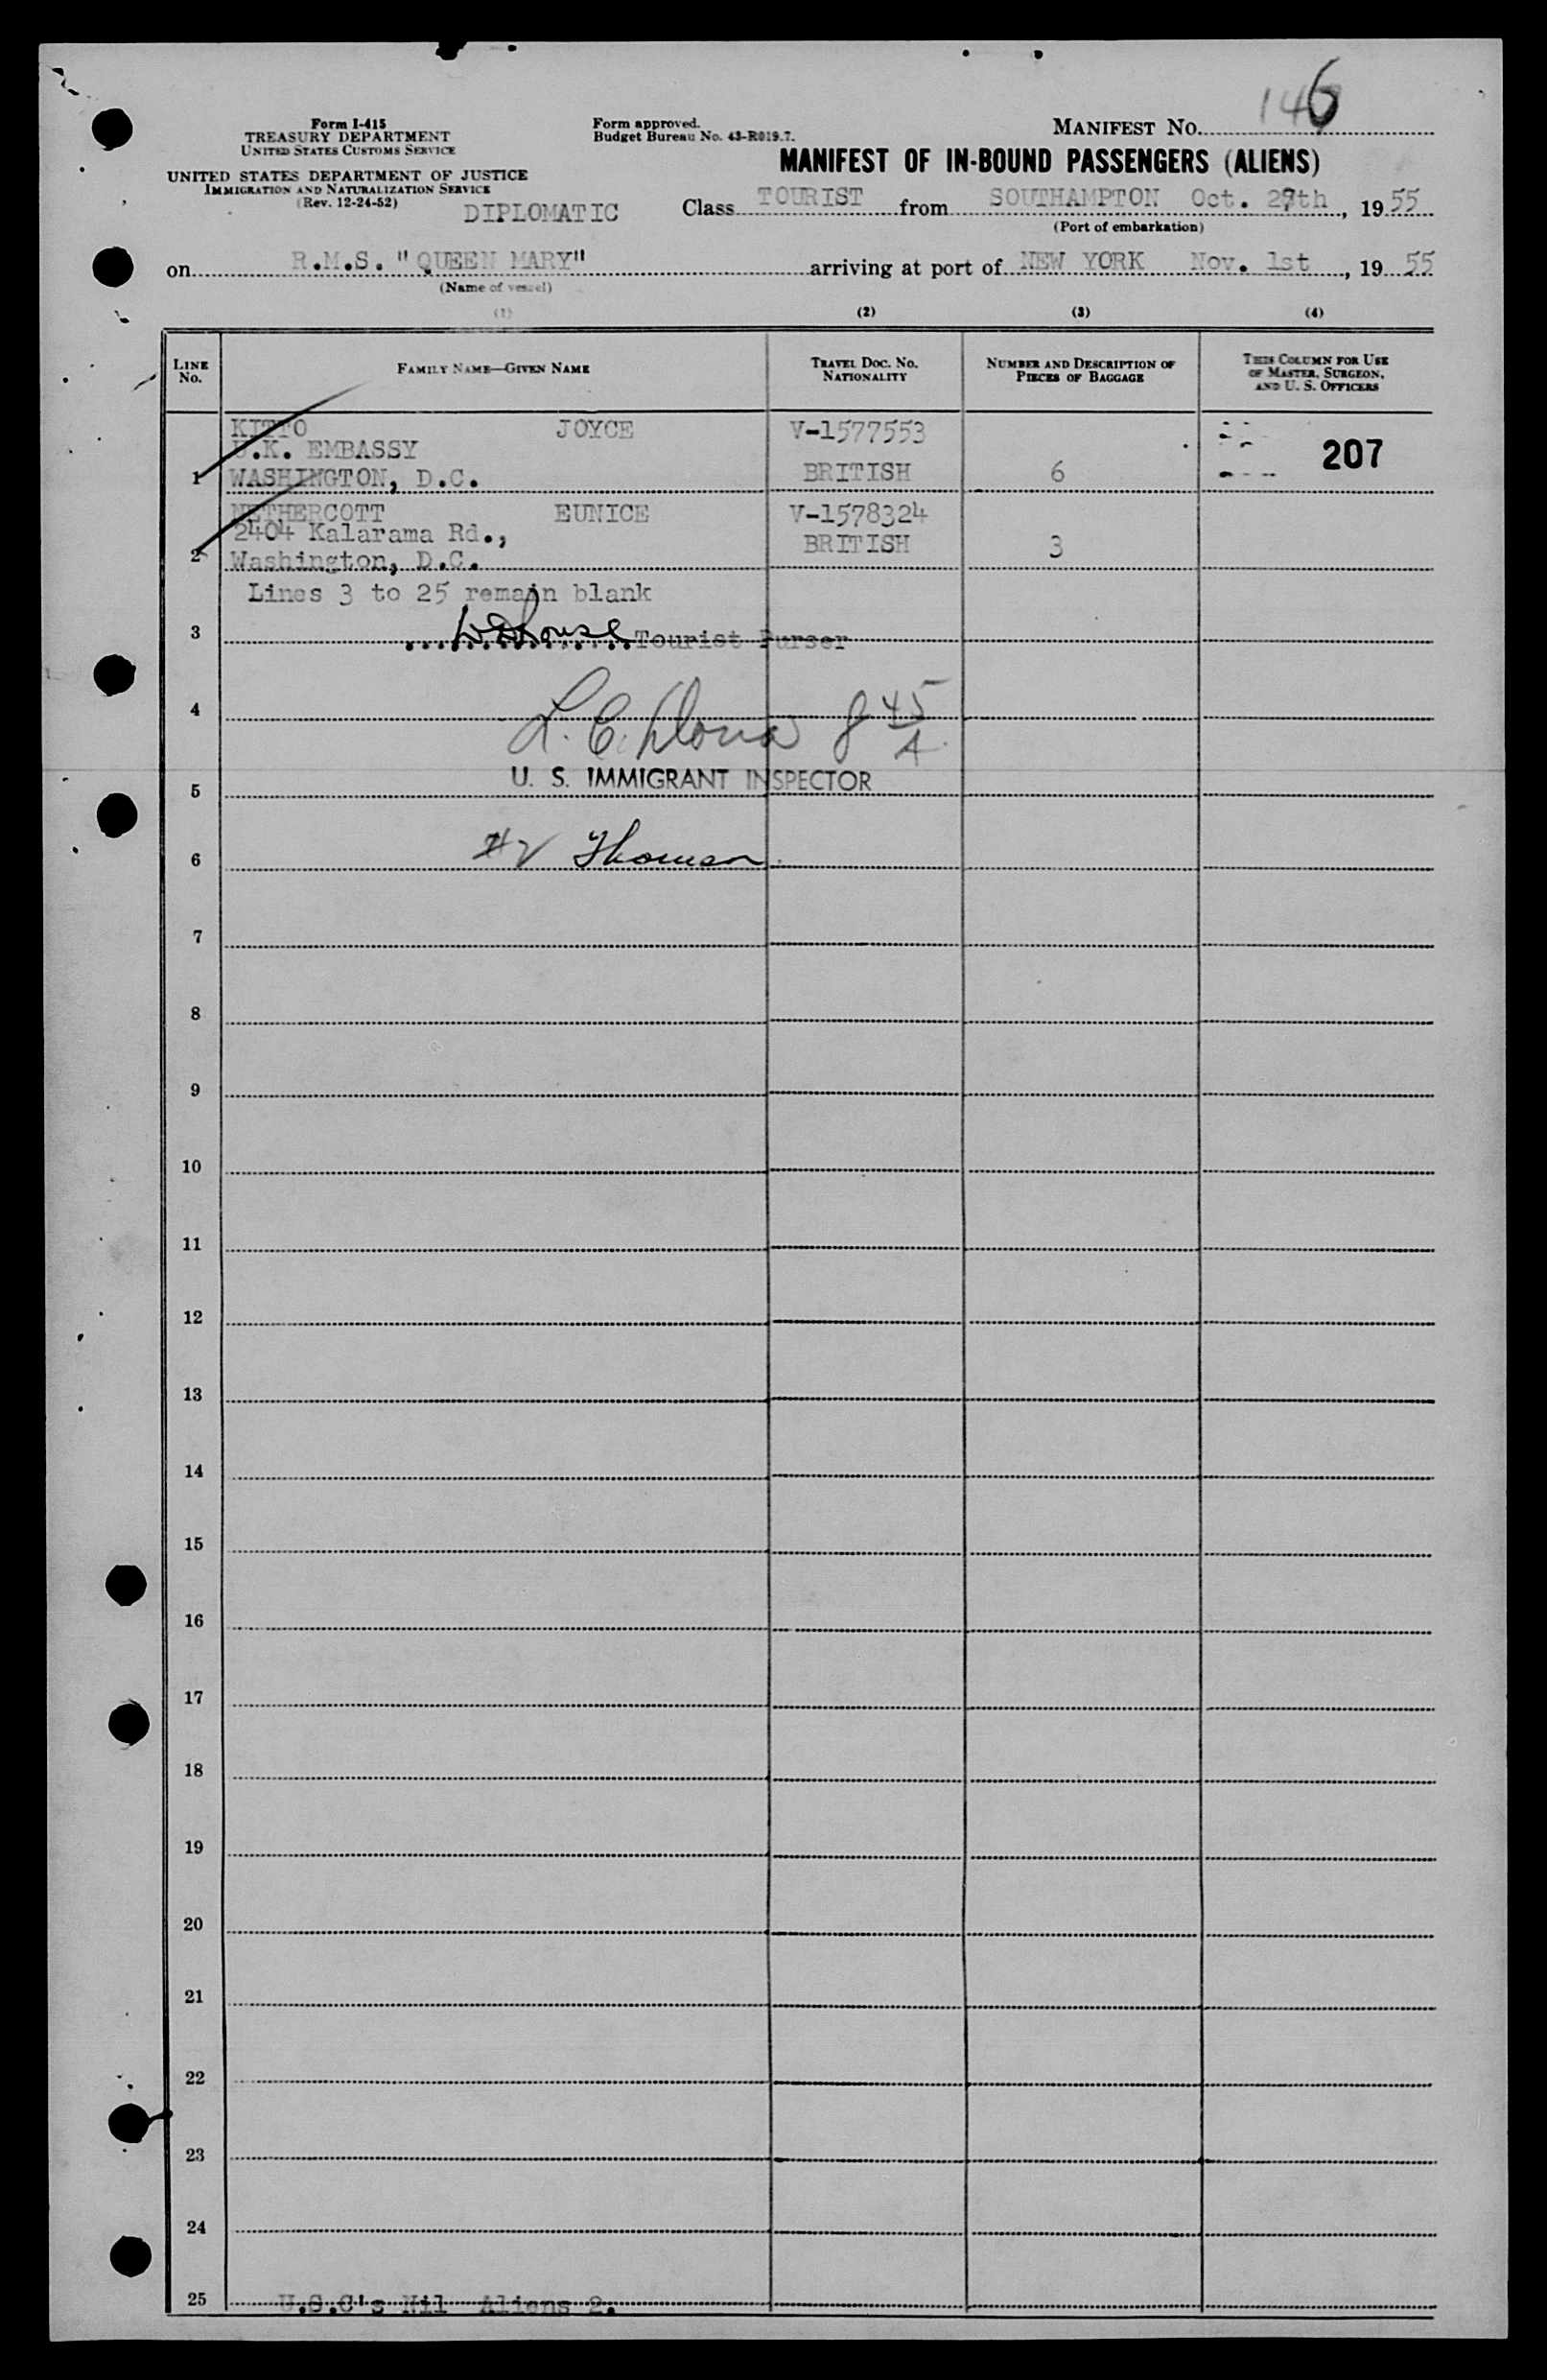 Form I-415
TREASURY DEPARTMENT
UNITED STATES CUSTOMS SERVICE
UNITED STATES DEPARTMENT OF JUSTICE
IMMIGRATION AND NATURALIZATION SERVICE
(Rev. 12-24-52)
Form approved.
Budget Bureau No. 43-R019.7.
MANIFEST No. 146
MANIFEST OF IN-BOUND PASSENGERS (ALIENS)
DIPLOMATIC Class TOURIST from SOUTHAMPTON Oct. 27th, 1955
(Port of embarkation)
on R.M.S. "QUEEN MARY" arriving at port of NEW YORK Nov. 1st, 1955
(Name of vessel)
(1) (2) (3) (4)
LINE No. FAMILY NAME—GIVEN NAME TRAVEL DOC. NO. NATIONALITY NUMBER AND DESCRIPTION OF PIECES OF BAGGAGE THIS COLUMN FOR USE OF MASTER, SURGEON, AND U. S. OFFICERS
KITTO JOYCE V-1577553
U.K. EMBASSY 207
1 WASHINGTON, D.C. BRITISH 6
NETHERCOTT EUNICE V-1578324
2404 Kalarama Rd., BRITISH 3
2 Washington, D.C.
Lines 3 to 25 remain blank
3 Tourist Purser
4 L. C. 8 45/A
U. S. IMMIGRANT INSPECTOR
5
6 #2 Thomson
7
8
9
10
11
12
13
14
15
16
17
18
19
20
21
22
23
24
25 U.S.C's Nil Aliens 2.